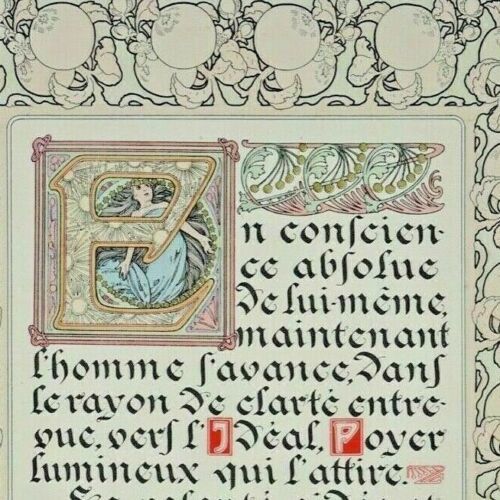 En conscien-
ce absolue
de lui-même,
maintenant
l'homme s'avance, dans
le rayon de clarté entre-
vue, vers l'Idéal, Foyer
lumineux qui l'attire.